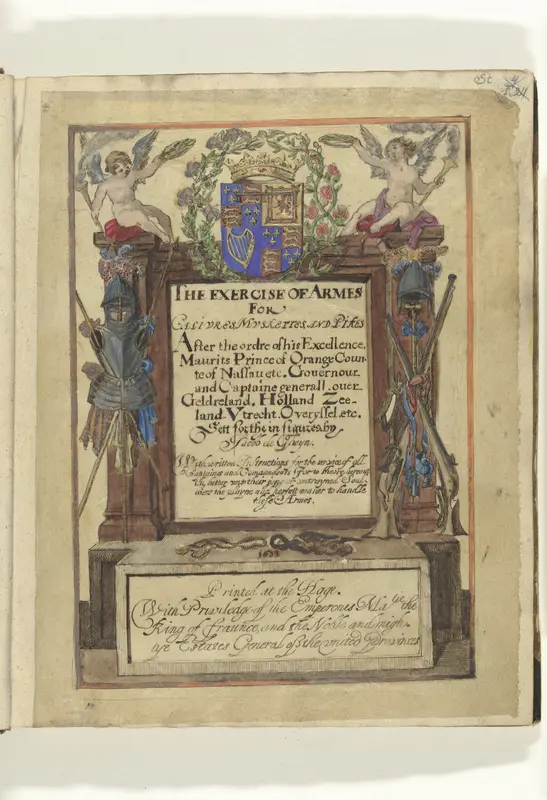 St
THE EXERCISE OF ARMES
FOR
CALIVRES MVSKETTES AND PIKES
After the ordre of his Excellence.
Maurits Prince of Orange Coun-
te of Nassau etc. Governour
and Captaine generall over
Geldreland, Holland Zee-
land. Vtrecht. Overyssel. etc.
Sett forthe in figures by
Jacob de Gheyn.
With written Instructions for the service of all
Captaines and Comaundours For to shewe hereout
the better unto their jong or untrayned Soul-
diers the playne and perfett maner to handle
these Armes.
1608
Printed at the Hage.
With Priviledge of the Emperours Matie the
King of Fraunce, and the Nobles and migh-
tye Estates Generall of the united Provinces